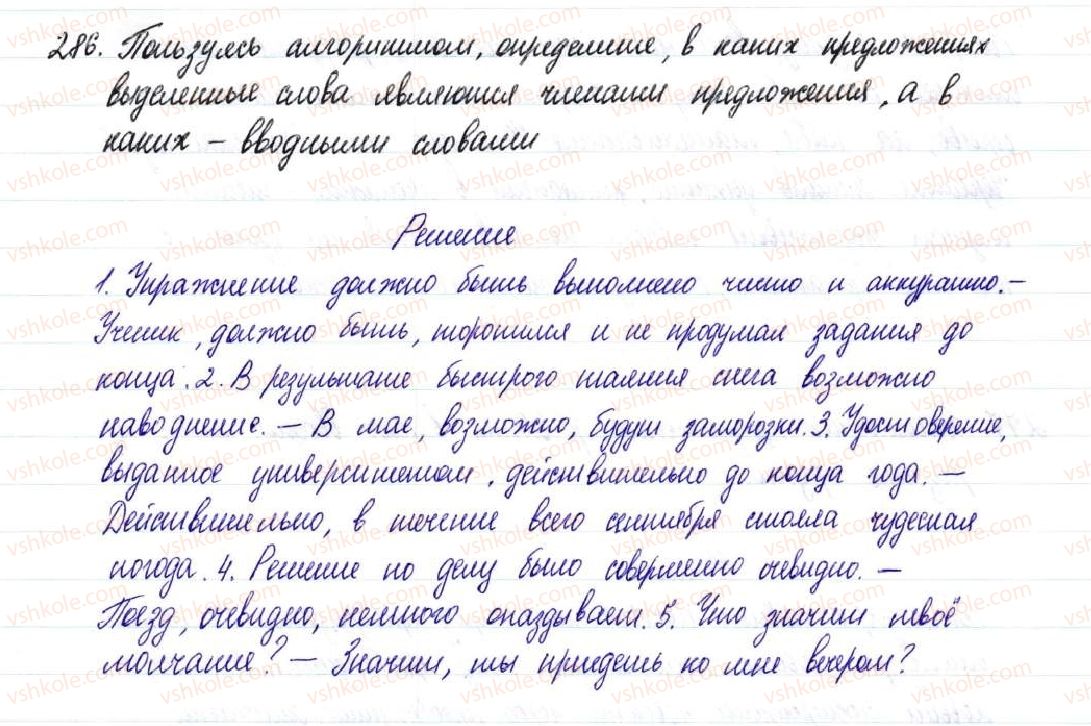 286. Пользуясь алгоритмом, определите, в каких предложениях
выделенные слова являются членами предложения, а в
каких – вводными словами
Решение
1. Упражнение должно быть выполнено чисто и аккуратно. –
Ученик, должно быть, торопился и не продумал задания до
конца. 2. В результате быстрого таяния снега возможно
наводнение. – В мае, возможно, будут заморозки. 3. Удостоверение,
выданное университетом, действительно до конца года. –
Действительно, в течение всего сентября стояла чудесная
погода. 4. Решение по делу было совершенно очевидно. –
Поезд, очевидно, немного опаздывает. 5. Что значит твоё
молчание? – Значит, ты придешь ко мне вечером?